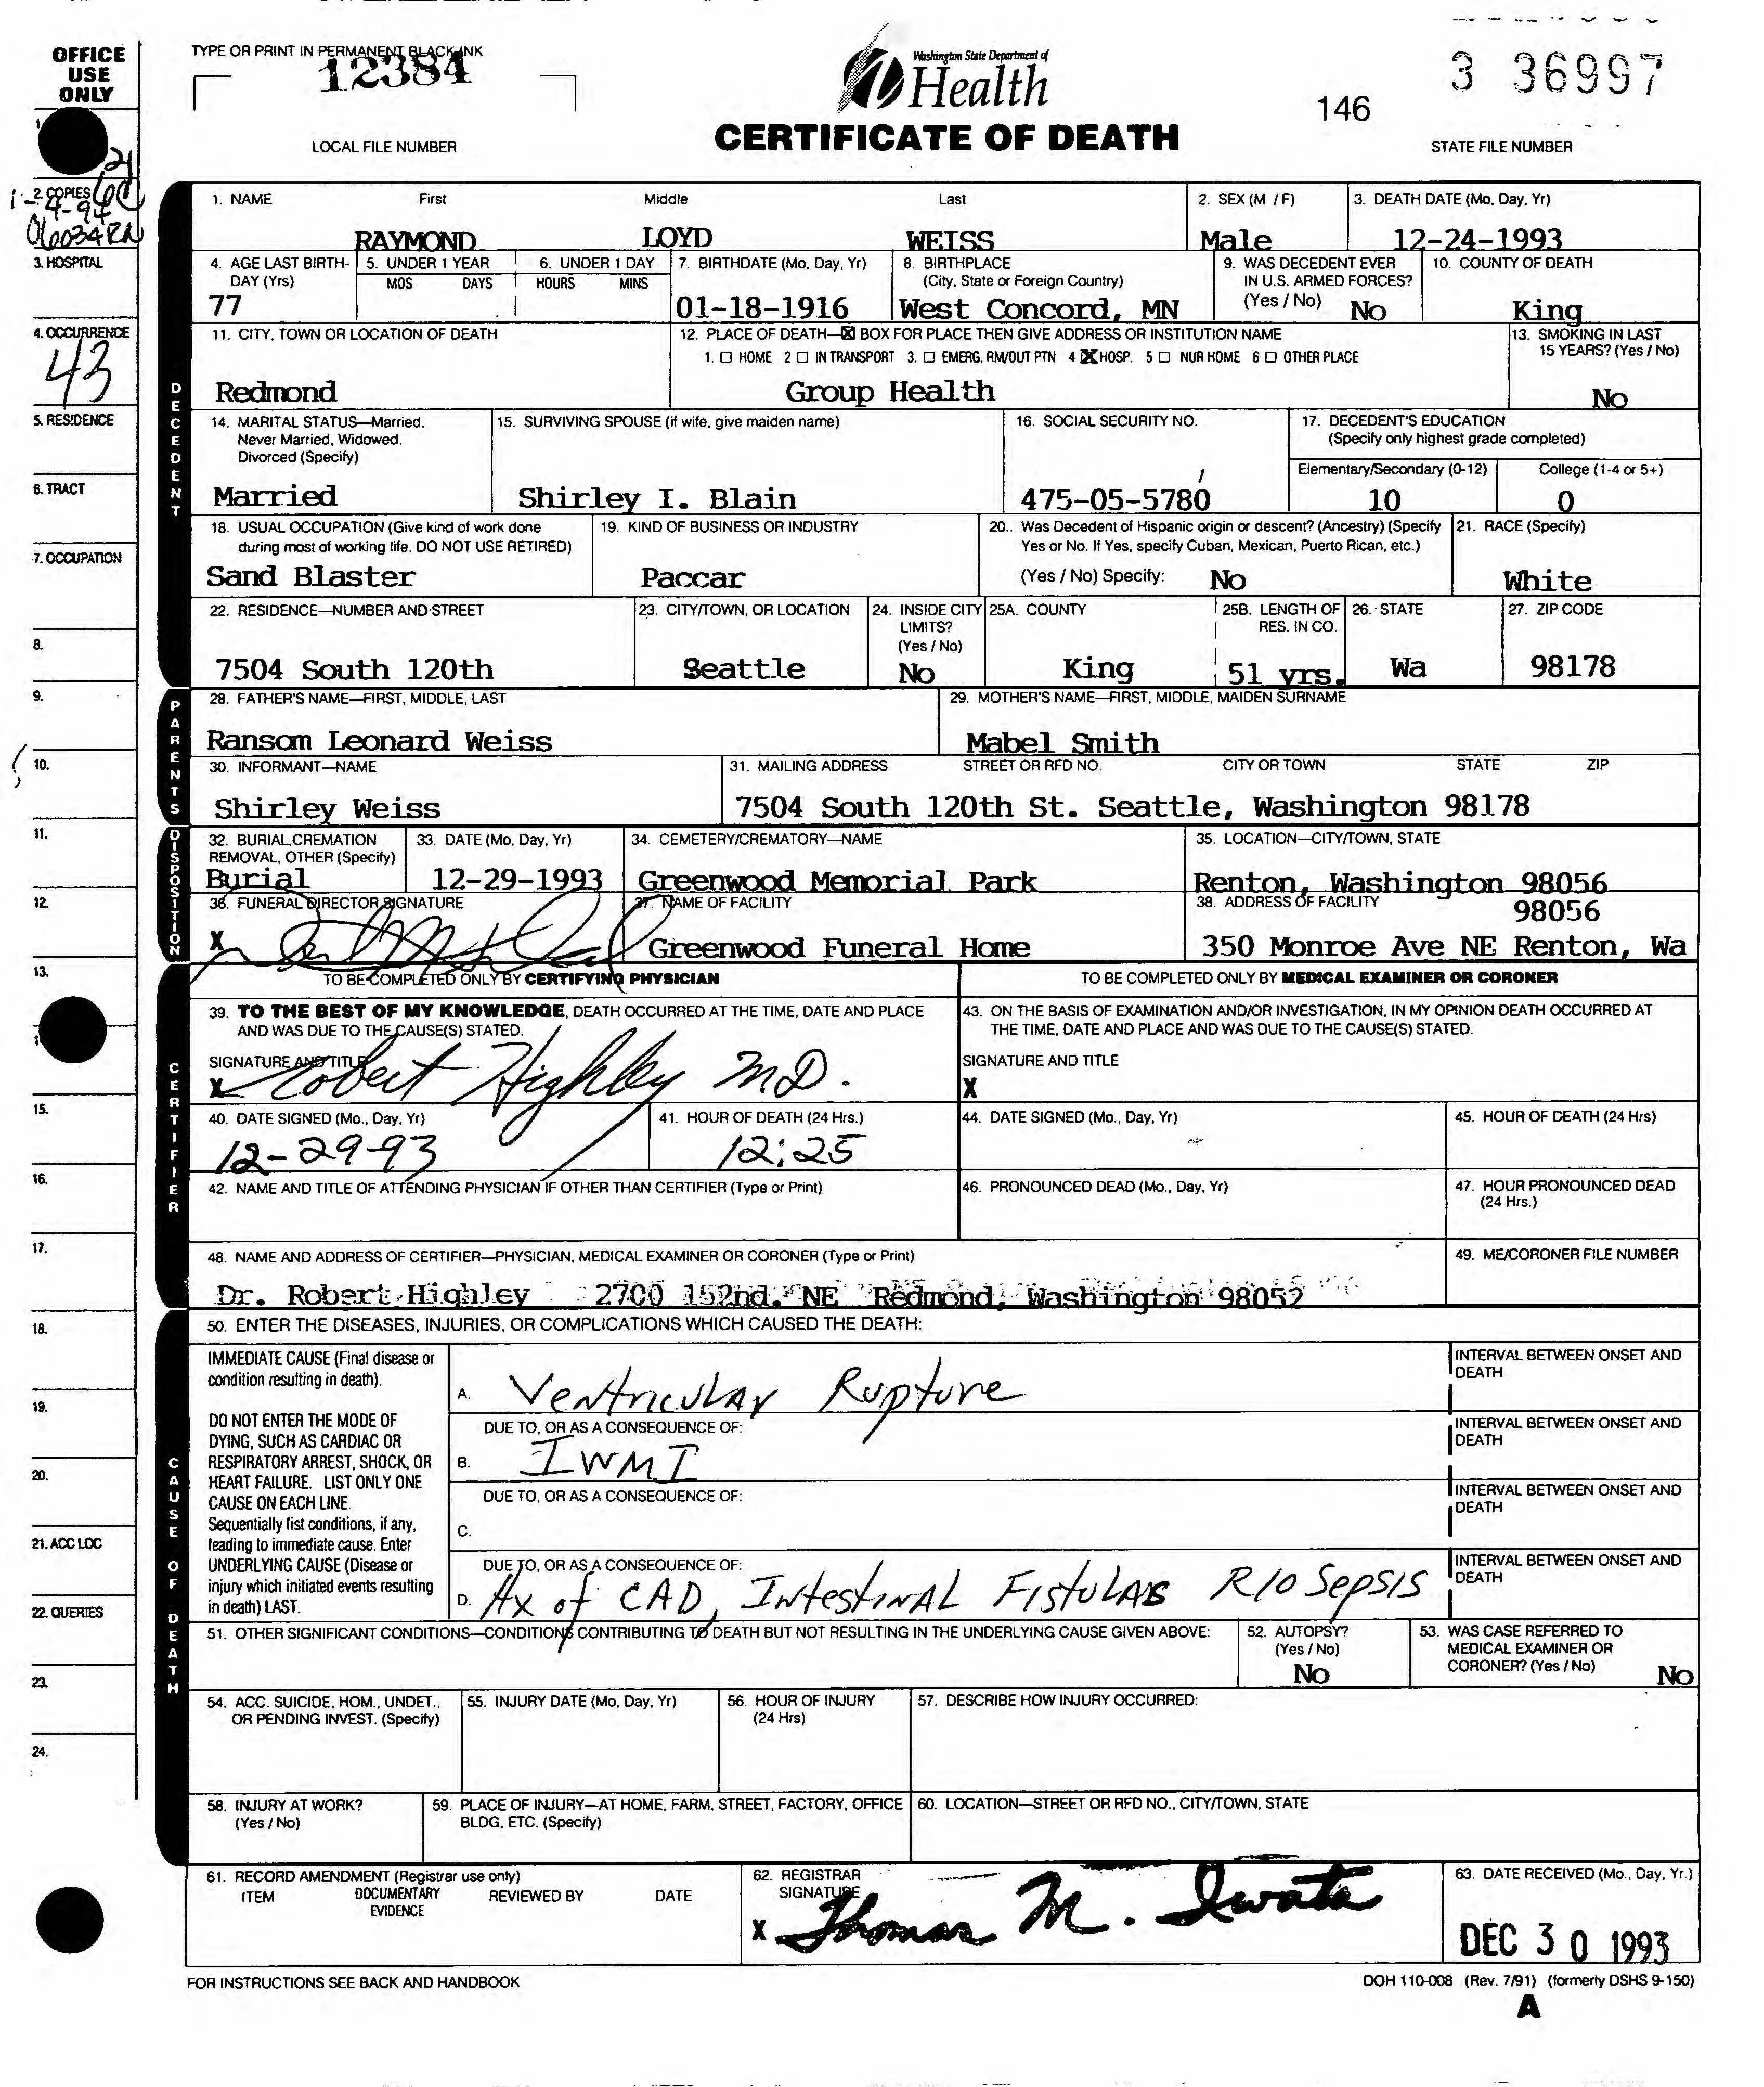 OFFICE USE ONLY
TYPE OR PRINT IN PERMANENT BLACK INK
12384
LOCAL FILE NUMBER
Washington State Department of
Health
CERTIFICATE OF DEATH
146
3 36997
STATE FILE NUMBER
2. COPIES
3. HOSPITAL
4. OCCURRENCE
43
5. RESIDENCE
6. TRACT
7. OCCUPATION
8.
9.
10.
11.
12.
13.
15.
16.
17.
18.
19.
20.
21. ACC LOC
22. QUERIES
23.
24.
DECEDENT
1. NAME First Middle Last
RAYMOND LOYD WEISS
2. SEX (M / F)
Male
3. DEATH DATE (Mo, Day, Yr)
12-24-1993
4. AGE LAST BIRTH-
DAY (Yrs)
77
5. UNDER 1 YEAR
MOS DAYS
6. UNDER 1 DAY
HOURS MINS
7. BIRTHDATE (Mo, Day, Yr)
01-18-1916
8. BIRTHPLACE
(City, State or Foreign Country)
West Concord, MN
9. WAS DECEDENT EVER
IN U.S. ARMED FORCES?
(Yes / No) No
10. COUNTY OF DEATH
King
11. CITY, TOWN OR LOCATION OF DEATH
Redmond
12. PLACE OF DEATH—☒ BOX FOR PLACE THEN GIVE ADDRESS OR INSTITUTION NAME
1. ☐ HOME 2 ☐ IN TRANSPORT 3. ☐ EMERG. RM/OUT PTN 4 ☒ HOSP. 5 ☐ NUR HOME 6 ☐ OTHER PLACE
Group Health
13. SMOKING IN LAST
15 YEARS? (Yes / No)
No
14. MARITAL STATUS—Married,
Never Married, Widowed,
Divorced (Specify)
Married
15. SURVIVING SPOUSE (if wife, give maiden name)
Shirley I. Blain
16. SOCIAL SECURITY NO.
475-05-5780
17. DECEDENT'S EDUCATION
(Specify only highest grade completed)
Elementary/Secondary (0-12) College (1-4 or 5+)
10 0
18. USUAL OCCUPATION (Give kind of work done
during most of working life. DO NOT USE RETIRED)
Sand Blaster
19. KIND OF BUSINESS OR INDUSTRY
Paccar
20.. Was Decedent of Hispanic origin or descent? (Ancestry) (Specify
Yes or No. If Yes, specify Cuban, Mexican, Puerto Rican, etc.)
(Yes / No) Specify: No
21. RACE (Specify)
White
22. RESIDENCE—NUMBER AND STREET
7504 South 120th
23. CITY/TOWN, OR LOCATION
Seattle
24. INSIDE CITY
LIMITS?
(Yes / No)
No
25A. COUNTY
King
25B. LENGTH OF
RES. IN CO.
51 yrs.
26. STATE
Wa
27. ZIP CODE
98178
PARENTS
28. FATHER'S NAME—FIRST, MIDDLE, LAST
Ransom Leonard Weiss
29. MOTHER'S NAME—FIRST, MIDDLE, MAIDEN SURNAME
Mabel Smith
30. INFORMANT—NAME
Shirley Weiss
31. MAILING ADDRESS STREET OR RFD NO. CITY OR TOWN STATE ZIP
7504 South 120th St. Seattle, Washington 98178
DISPOSITION
32. BURIAL, CREMATION
REMOVAL, OTHER (Specify)
Burial
33. DATE (Mo, Day, Yr)
12-29-1993
34. CEMETERY/CREMATORY—NAME
Greenwood Memorial Park
35. LOCATION—CITY/TOWN, STATE
Renton, Washington 98056
36. FUNERAL DIRECTOR SIGNATURE
X
37. NAME OF FACILITY
Greenwood Funeral Home
38. ADDRESS OF FACILITY
98056
350 Monroe Ave NE Renton, Wa
CERTIFIER
TO BE COMPLETED ONLY BY CERTIFYING PHYSICIAN
39. TO THE BEST OF MY KNOWLEDGE, DEATH OCCURRED AT THE TIME, DATE AND PLACE
AND WAS DUE TO THE CAUSE(S) STATED.
SIGNATURE AND TITLE
X Robert Highley MD.
40. DATE SIGNED (Mo., Day, Yr)
12-29-93
41. HOUR OF DEATH (24 Hrs.)
12:25
42. NAME AND TITLE OF ATTENDING PHYSICIAN IF OTHER THAN CERTIFIER (Type or Print)
TO BE COMPLETED ONLY BY MEDICAL EXAMINER OR CORONER
43. ON THE BASIS OF EXAMINATION AND/OR INVESTIGATION, IN MY OPINION DEATH OCCURRED AT
THE TIME, DATE AND PLACE AND WAS DUE TO THE CAUSE(S) STATED.
SIGNATURE AND TITLE
X
44. DATE SIGNED (Mo., Day, Yr)
45. HOUR OF DEATH (24 Hrs)
46. PRONOUNCED DEAD (Mo., Day, Yr)
47. HOUR PRONOUNCED DEAD
(24 Hrs.)
48. NAME AND ADDRESS OF CERTIFIER—PHYSICIAN, MEDICAL EXAMINER OR CORONER (Type or Print)
Dr. Robert Highley 2700 152nd. NE Redmond, Washington 98052
49. ME/CORONER FILE NUMBER
CAUSE OF DEATH
50. ENTER THE DISEASES, INJURIES, OR COMPLICATIONS WHICH CAUSED THE DEATH:
IMMEDIATE CAUSE (Final disease or
condition resulting in death).
DO NOT ENTER THE MODE OF
DYING, SUCH AS CARDIAC OR
RESPIRATORY ARREST, SHOCK, OR
HEART FAILURE. LIST ONLY ONE
CAUSE ON EACH LINE.
Sequentially list conditions, if any,
leading to immediate cause. Enter
UNDERLYING CAUSE (Disease or
injury which initiated events resulting
in death) LAST.
A. Ventricular Rupture
INTERVAL BETWEEN ONSET AND
DEATH
DUE TO, OR AS A CONSEQUENCE OF:
B. IWMI
INTERVAL BETWEEN ONSET AND
DEATH
DUE TO, OR AS A CONSEQUENCE OF:
C.
INTERVAL BETWEEN ONSET AND
DEATH
DUE TO, OR AS A CONSEQUENCE OF:
D. Hx of CAD, Intestinal Fistulas R/O Sepsis
INTERVAL BETWEEN ONSET AND
DEATH
51. OTHER SIGNIFICANT CONDITIONS—CONDITIONS CONTRIBUTING TO DEATH BUT NOT RESULTING IN THE UNDERLYING CAUSE GIVEN ABOVE:
52. AUTOPSY?
(Yes / No)
No
53. WAS CASE REFERRED TO
MEDICAL EXAMINER OR
CORONER? (Yes / No) No
54. ACC. SUICIDE, HOM., UNDET.,
OR PENDING INVEST. (Specify)
55. INJURY DATE (Mo, Day, Yr)
56. HOUR OF INJURY
(24 Hrs)
57. DESCRIBE HOW INJURY OCCURRED:
58. INJURY AT WORK?
(Yes / No)
59. PLACE OF INJURY—AT HOME, FARM, STREET, FACTORY, OFFICE
BLDG, ETC. (Specify)
60. LOCATION—STREET OR RFD NO., CITY/TOWN, STATE
61. RECORD AMENDMENT (Registrar use only)
ITEM DOCUMENTARY EVIDENCE REVIEWED BY DATE
62. REGISTRAR
SIGNATURE
X Thomas M. Iwata
63. DATE RECEIVED (Mo., Day, Yr.)
DEC 30 1993
FOR INSTRUCTIONS SEE BACK AND HANDBOOK
DOH 110-008 (Rev. 7/91) (formerly DSHS 9-150)
A